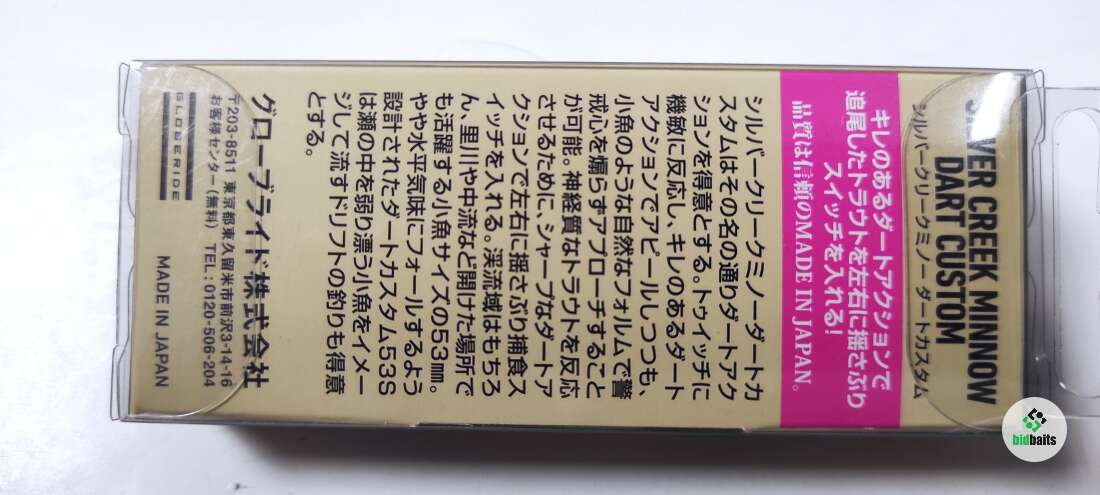 SILVER CREEK MINNOW
DART CUSTOM
シルバークリークミノー ダートカスタム
キレのあるダートアクションで
追尾したトラウトを左右に揺さぶり
スイッチを入れる!
品質は信頼のMADE IN JAPAN。
シルバークリークミノーダートカ
スタムはその名の通りダートアク
ションを得意とする。トゥイッチに
機敏に反応し、キレのあるダート
アクションでアピールしつつも、
小魚のような自然なフォルムで警
戒心を煽らずアプローチすること
が可能。神経質なトラウトを反応
させるために、シャープなダートア
クションで左右に揺さぶり捕食ス
イッチを入れる。渓流域はもちろ
ん、里川や中流など開けた場所で
も活躍する小魚サイズの53mm。
やや水平気味にフォールするよう
設計されたダートカスタム53S
は瀬の中を弱り漂う小魚をイメー
ジして流すドリフトの釣りも得意
とする。
グローブライド株式会社
〒203-8511 東京都東久留米市前沢3-14-16
お客様センター(無料) TEL:0120-506-204
GLOBERIDE
MADE IN JAPAN
bidbaits